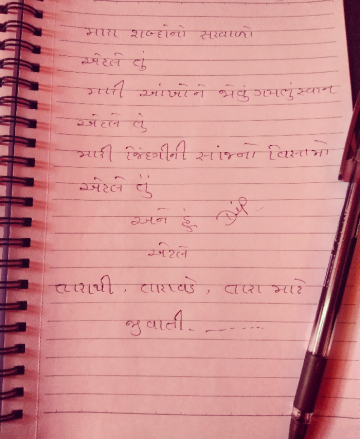 મારા શબ્દોનો સરવાળો
એટલે તું
મારી આંખોને જોવું ગમતું સ્વપ્ન
એટલે તું
મારી જિંદગીની સાંજનો વિસામો
એટલે તું
અને હું
એટલે
તારાથી, તારાવડે, તારા માટે
જીવાતી. -------